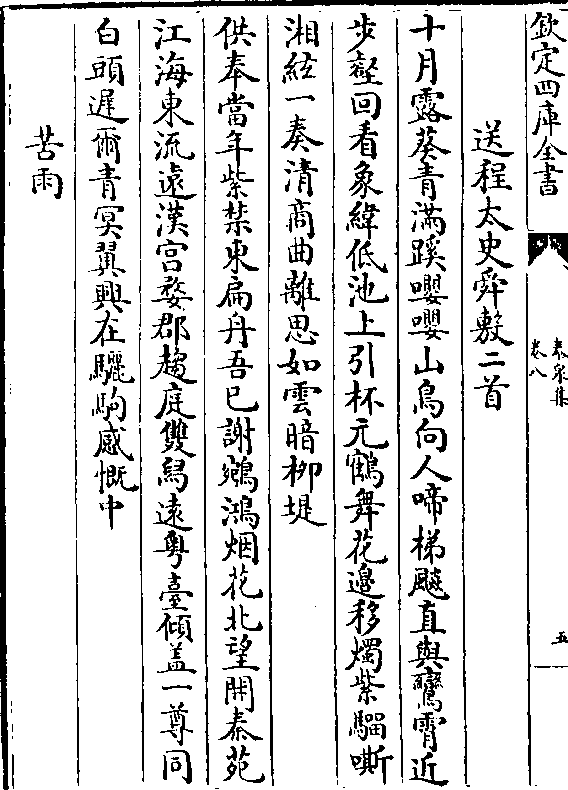 欽定四庫全書
泰泉集
卷八
五
送程太史舜敷二首
十月露葵青滿蹊嚶嚶山鳥向人啼梯飈直與鸞霄近
步壑回看象緯低池上引杯元鶴舞花邉移燭紫騮嘶
湘絃一奏清商曲離思如雲暗栁堤
供奉當年紫禁東扁舟吾已謝鵷鴻烟花北望開秦苑
江海東流遶漢宫婺郡趨庭雙舄遠粤臺傾盖一尊同
白頭遲爾青冥翼興在驪駒感慨中
苦雨